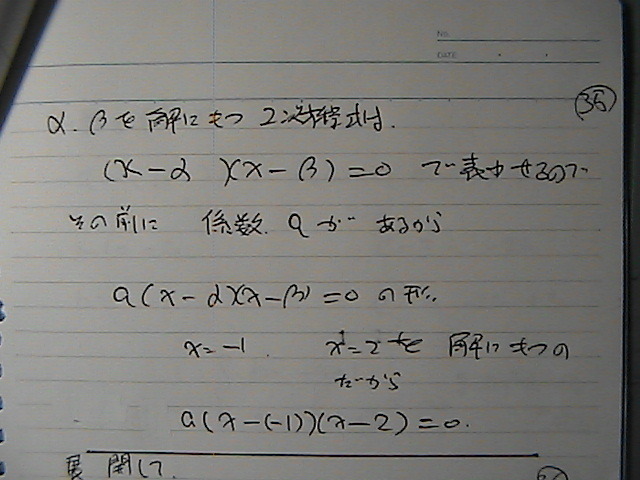 No.
DATE
36
α. βを解にもつ 2次方程式は.
(x-α)(x-β)=0 で表わせるので
その前に 係数. aが あるから
a(x-α)(x-β)=0 の形.
x=-1. x=2を 解にもつの
だから
a(x-(-1))(x-2)=0.
展開して